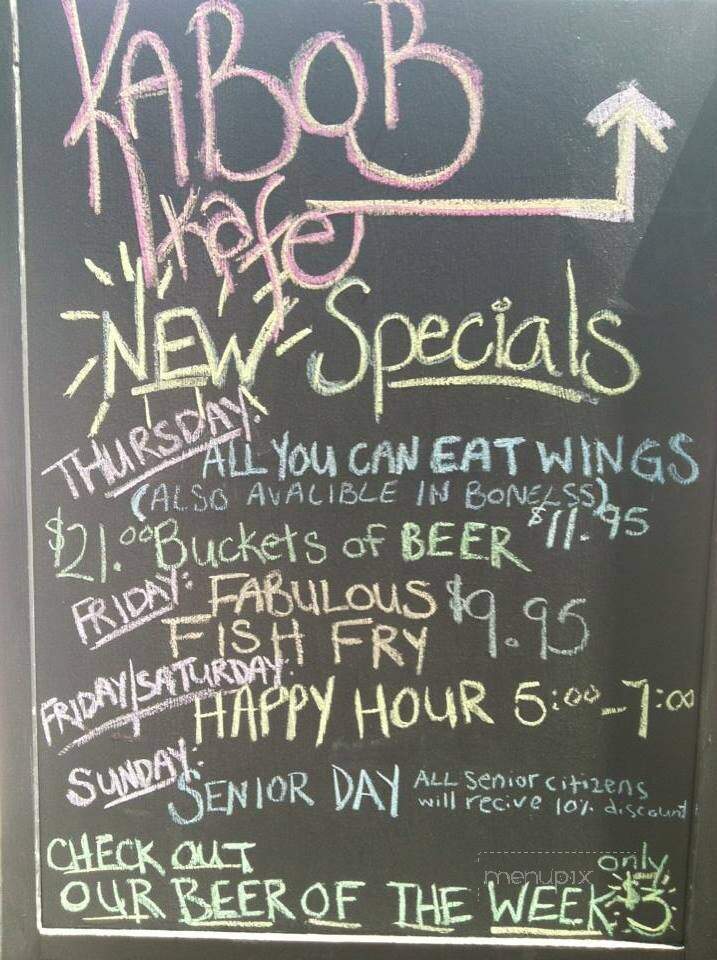 KABOB
kafe
NEW Specials
THURSDAY:
ALL YOU CAN EAT WINGS
(ALSO AVALIBLE IN BONELSS)
$11.95
$21.00 Buckets of BEER
FRIDAY: FABULOUS $9.95
FISH FRY
FRIDAY/SATURDAY:
HAPPY HOUR 5:00-7:00
SUNDAY:
SENIOR DAY ALL Senior citizens
will recive 10% discount
CHECK OUT
OUR BEER OF THE WEEK only $3
menupix